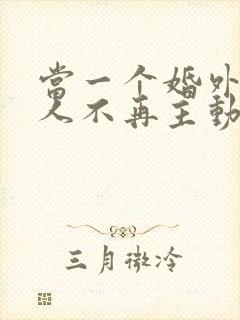 當一个婚外
人不再主動
三月微冷